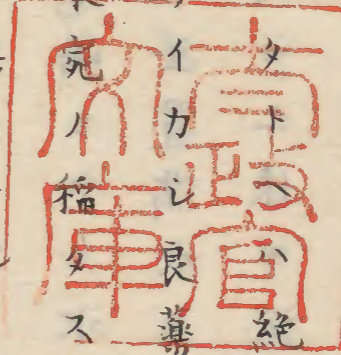 タトヘハ絶
イカレ良藥
宛ノ稲タス
太政官
文庫